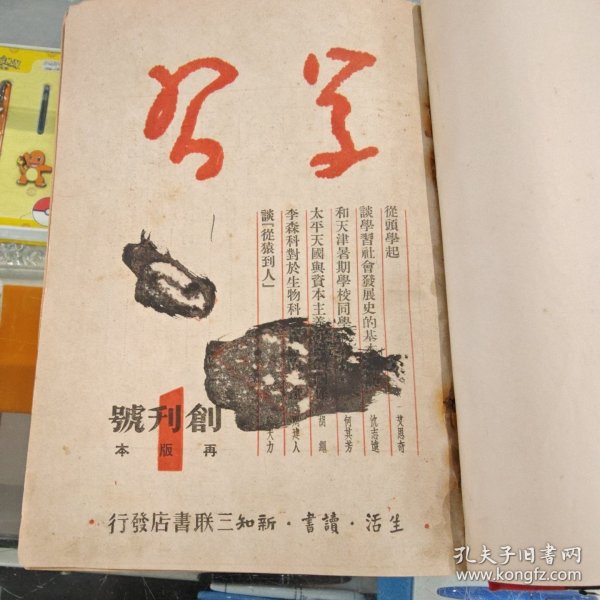 學習
從頭學起 艾思奇
談學習社會發展史的基本 沈志遠
和天津暑期學校同學 何其芳
太平天國與資本主義 胡繩
李森科對於生物科 建人
談「從猿到人」 大力
創刊號
1
再版本
生活・讀書・新知三联書店發行
孔夫子旧书网
www.kongfz.com